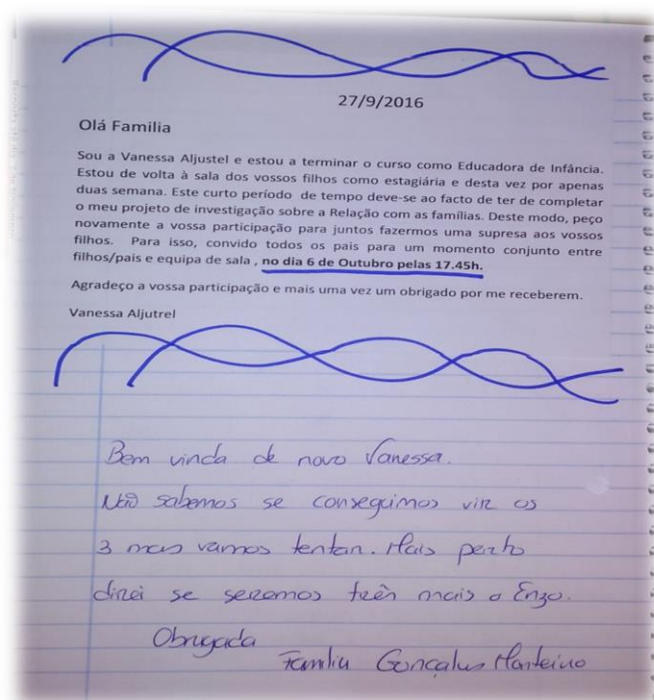 27/9/2016
Olá Familia
Sou a Vanessa Aljustel e estou a terminar o curso como Educadora de Infância.
Estou de volta à sala dos vossos filhos como estagiária e desta vez por apenas
duas semana. Este curto período de tempo deve-se ao facto de ter de completar
o meu projeto de investigação sobre a Relação com as famílias. Deste modo, peço
novamente a vossa participação para juntos fazermos uma supresa aos vossos
filhos. Para isso, convido todos os pais para um momento conjunto entre
filhos/pais e equipa de sala , no dia 6 de Outubro pelas 17.45h.
Agradeço a vossa participação e mais uma vez um obrigado por me receberem.
Vanessa Aljutrel
Bem vinda de novo Vanessa.
Não sabemos se conseguimos vir os
3 mas vamos tentar. Mais perto
direi se seremos três mais o Enzo.
Obrigada
Familia Gonçalves Monteiro